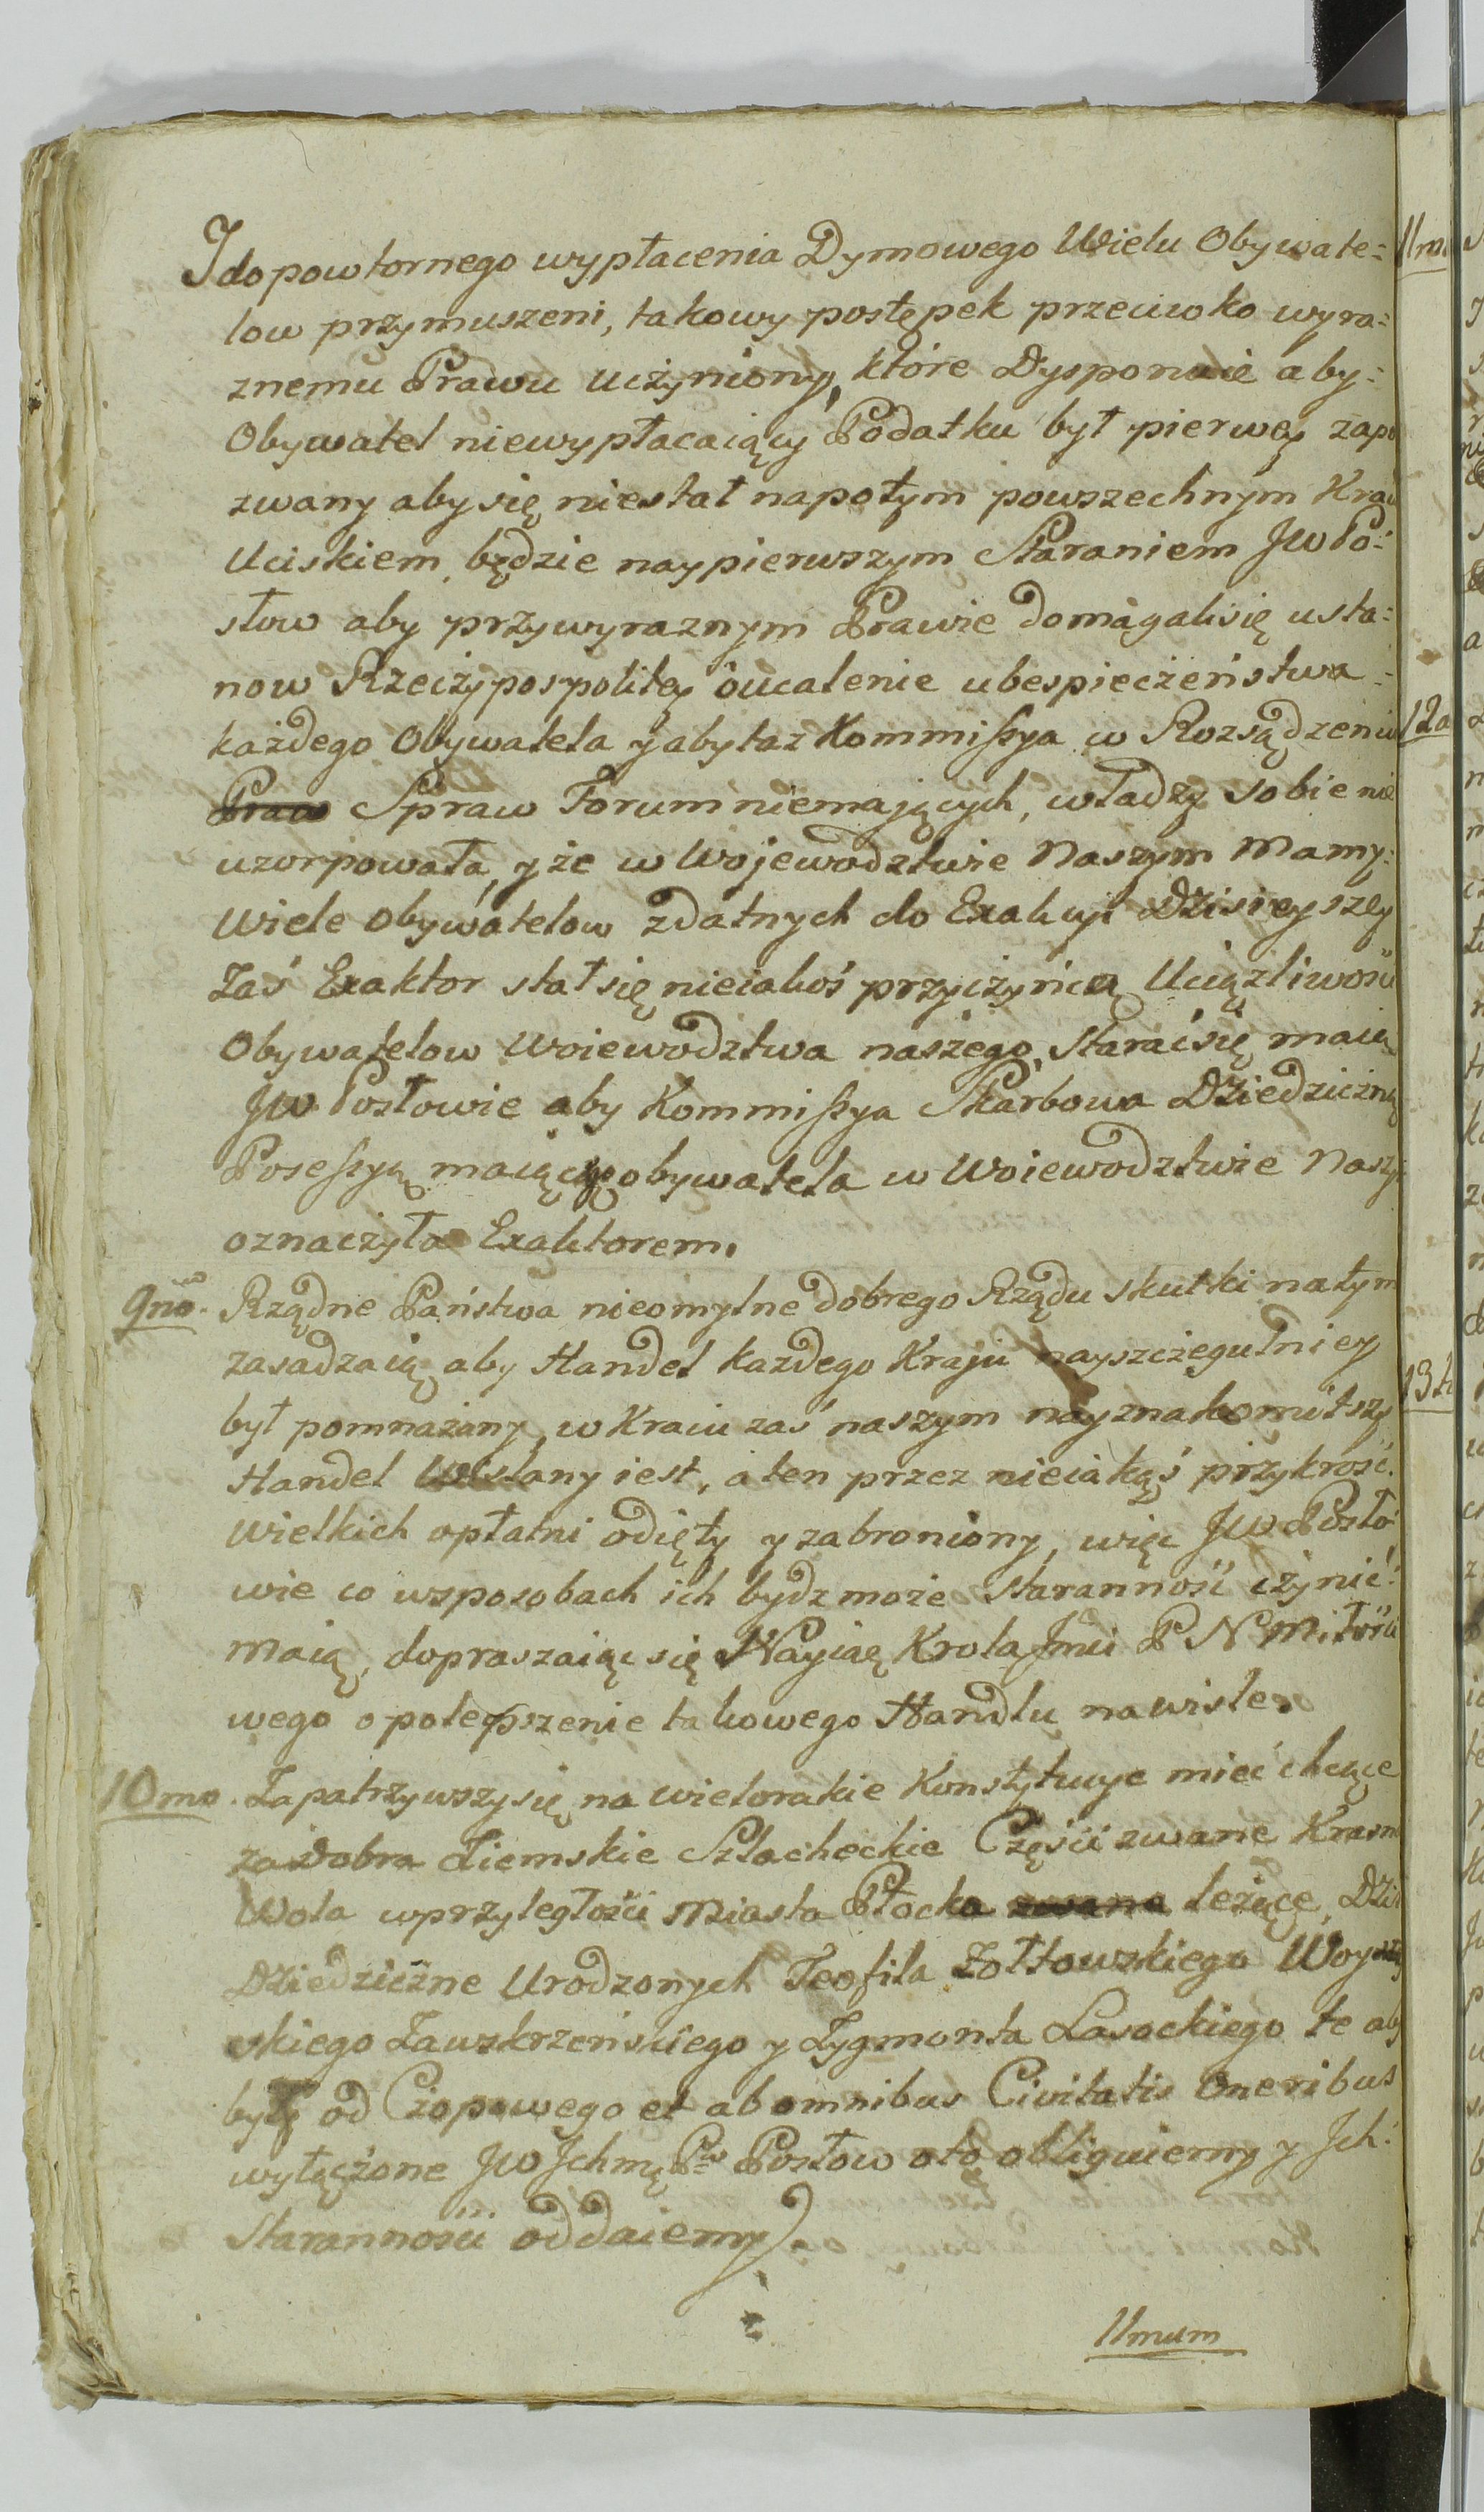 I do powtornego wypłacenia Dymowego Wielu Obywate=
low przymuszeni, takowy postępek przeciwko wyra=
znemu Prawu uczyniony, które Dysponuie aby=
Obywatel niewypłacaiący Podatku był pierwey zapo
zwany aby się niestał napotym powszechnym Kraiu
Uciskiem, będzie naypierwszym Staraniem JW Po=
słow aby przy wyraznym Prawie domagali się usta=
now Rzeczypospolitey o ucalenie ubespieczeństwa
każdego Obywatela y aby taz Kommissya w Rozsądzeniu
Praw Spraw Forum niemających, władzy sobie nie
uzorpowała, y że w Wojewodztwie Naszym Mamy=
Wiele obywatelow zdatnych do Exakcyi Dzisieyszey
Zaś Exaktor stał się nieiakoś przyczyncą Uciązliwości
Obywatelow Woiewodztwa naszego, Starać się maią
JW. Posłowie aby Kommissya Skarbowa Dziedziczną
Possessyą maiącego obywatela w Woiewodztwie Naszy
oznaczyła Exaktorem.
9no. Rządne Państwa nieomylne dobrego Rządu skutki na tym
zasadzaią aby Handel każdego Kraju nayszczegulniey
był pomnażany, w Kraiu zaś naszym nayznakomitszy
Handel Wislany iest, a ten przez nieiakąś przykrość
wielkich opłatni odięty y zabroniony, więc JW Posło=
wie co wsposobach ich bydz może Staranność czynić=
maią, dopraszaiąc się Nayiaś Krola Jmci P N Miłości
wego o polepszenie takowego Handlu na wisle.
10mo. Zapatrzywszy się na wielorakie Konstytucye mieć chcące
za dobra Ziemskie Szlacheckie Części zwane Krasna
Wola w przyległości Miasta Płocka zwana leżące, Dzi
Dziedziczne Urodzonych Teofila Żołtowskiego Woysk
skiego Zawskrzeńskiego y Zygmonta Lasockiego te aby
były od Czopowego et ab omnibus Civitatis Oneribus
wyłączone JW Jchmę Pw Posłow o to obliguiemy y Jch=
Staranności oddaiemy.
11mum
11mo
12o
13ti